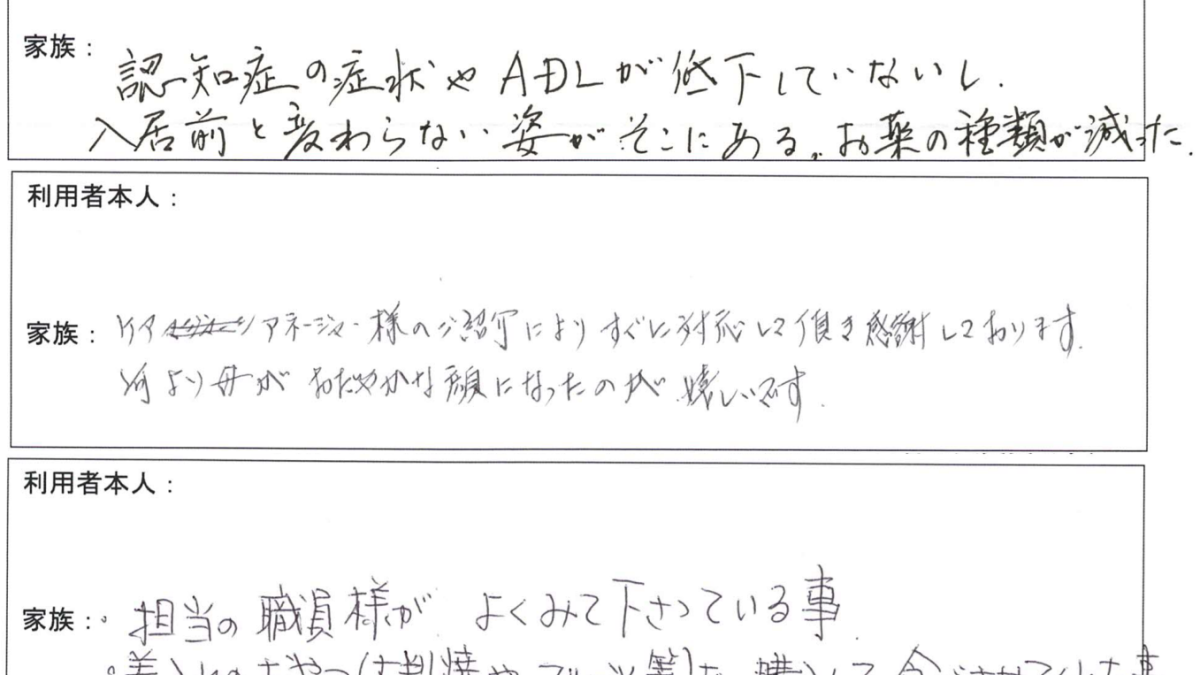 家族：認知症の症状やADLが低下していないし.
入居前と変わらない姿がそこにある。お薬の種類が減った.
利用者本人：
家族：ケアマネージャー様のご紹介によりすぐに対応して頂き感謝しております.
何より母がおだやかな顔になったのが嬉しいです.
利用者本人：
家族：・担当の職員様が よくみて下さっている事.